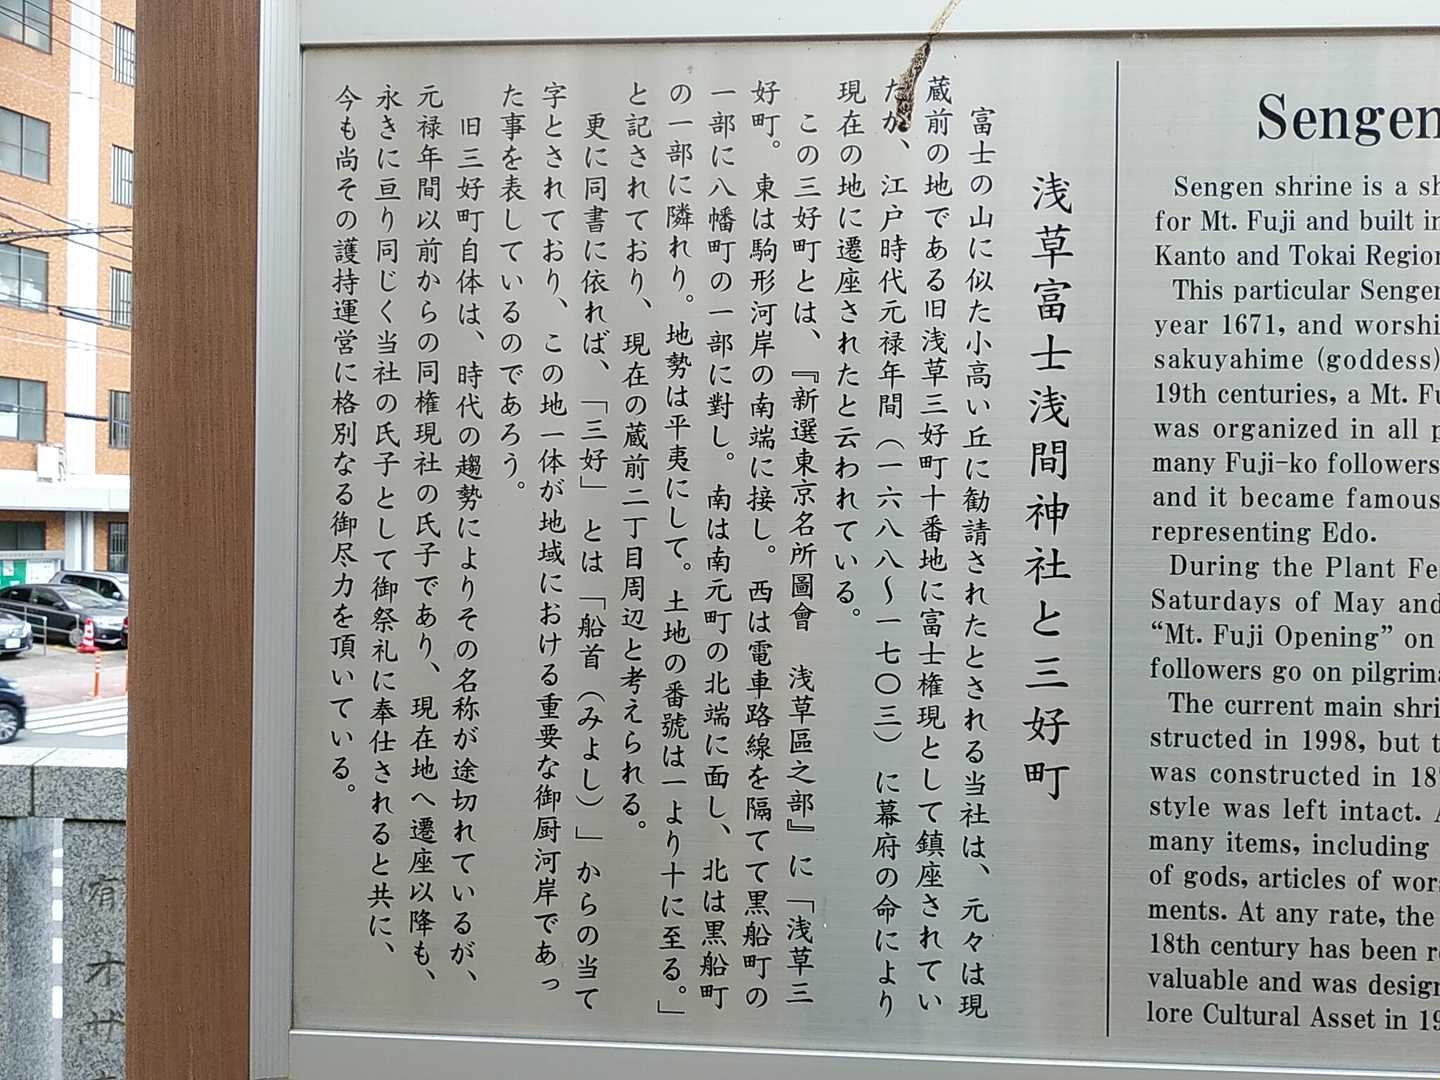 浅草富士浅間神社と三好町
富士の山に似た小高い丘に勧請されたとされる当社は、元々は現
蔵前の地である旧浅草三好町十番地に富士権現として鎮座されてい
たが、江戸時代元禄年間（一六八八〜一七〇三）に幕府の命により
現在の地に遷座されたと云われている。
この三好町とは、『新選東京名所圖會　浅草區之部』に「浅草三
好町。東は駒形河岸の南端に接し。西は電車路線を隔てて黒船町の
一部に八幡町の一部に對し。南は南元町の北端に面し、北は黒船町
の一部に隣れり。地勢は平夷にして。土地の番號は一より十に至る。」
と記されており、現在の蔵前二丁目周辺と考えられる。
更に同書に依れば、「三好」とは「船首（みよし）」からの当て
字とされており、この地一体が地域における重要な御厨河岸であっ
た事を表しているのであろう。
旧三好町自体は、時代の趨勢によりその名称が途切れているが、
元禄年間以前からの同権現社の氏子であり、現在地へ遷座以降も、
永きに亘り同じく当社の氏子として御祭礼に奉仕されると共に、
今も尚その護持運営に格別なる御尽力を頂いている。
Sengen
Sengen shrine is a sh
for Mt. Fuji and built in
Kanto and Tokai Region
This particular Sengen
year 1671, and worshi
sakuyahime (goddess)
19th centuries, a Mt. Fu
was organized in all p
many Fuji-ko followers
and it became famous
representing Edo.
During the Plant Fe
Saturdays of May and
“Mt. Fuji Opening” on
followers go on pilgrima
The current main shri
structed in 1998, but t
was constructed in 18
style was left intact. A
many items, including
of gods, articles of wor
ments. At any rate, the
18th century has been re
valuable and was design
lore Cultural Asset in 19
㈲オザ